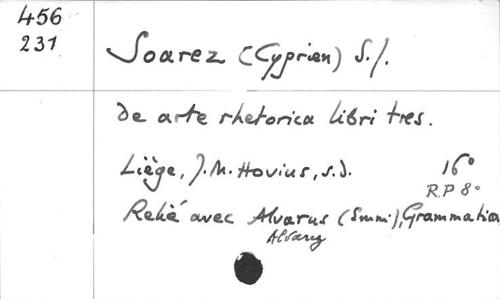 456
231
Soarez (Cyprien) S.J.
De arte rhetorica libri tres.
Liège, J.M. Hovius, s.d. 16°
R.P 8°
Relié avec Alvarus (Emm.), Grammatica
Alvarez